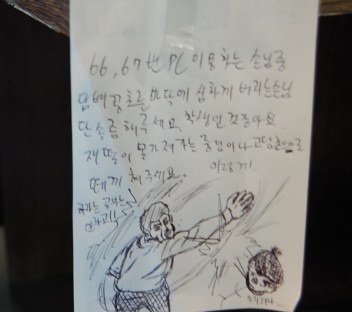 66, 67번 PC 이용하는 손님중
담배꽁초를 바닥에 심하게 버리는손님
단속좀 해주세요. 학생인 것같아요
재떨이 못가져가는 중딩이나 고딩
이랑께!
해주세요..
하라는 공부는